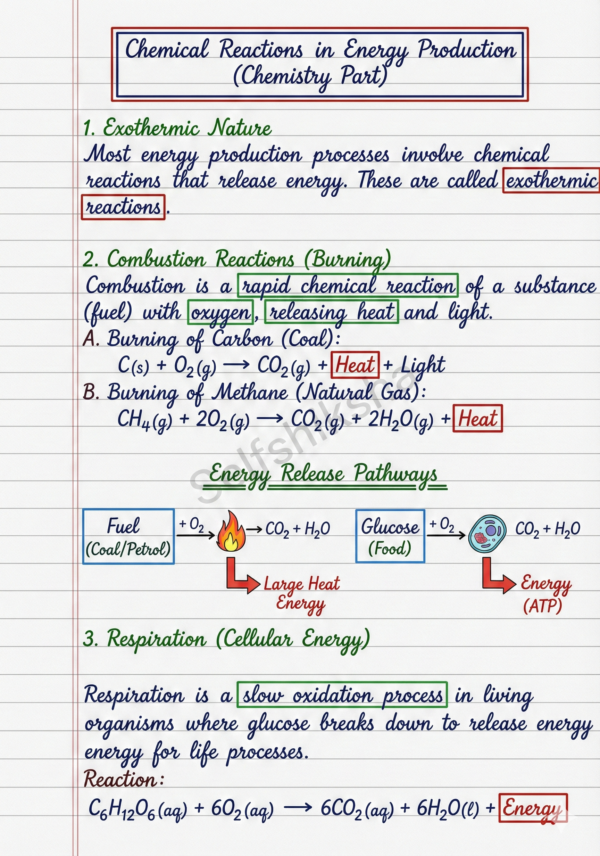 Chemical Reactions in Energy Production
(Chemistry Part)
1. Exothermic Nature
Most energy production processes involve chemical
reactions that release energy. These are called exothermic
reactions.
2. Combustion Reactions (Burning)
Combustion is a rapid chemical reaction of a substance
(fuel) with oxygen, releasing heat and light.
A. Burning of Carbon (Coal):
C(s) + O₂(g) → CO₂(g) + Heat + Light
B. Burning of Methane (Natural Gas):
CH₄(g) + 2O₂(g) → CO₂(g) + 2H₂O(g) + Heat
Selfshiksha
Energy Release Pathways
Fuel
(Coal/Petrol)
+ O₂
→ CO₂ + H₂O
Large Heat
Energy
Glucose
(Food)
+ O₂
CO₂ + H₂O
Energy
(ATP)
3. Respiration (Cellular Energy)
Respiration is a slow oxidation process in living
organisms where glucose breaks down to release energy
energy for life processes.
Reaction:
C₆H₁₂O₆(aq) + 6O₂(aq) → 6CO₂(aq) + 6H₂O(l) + Energy